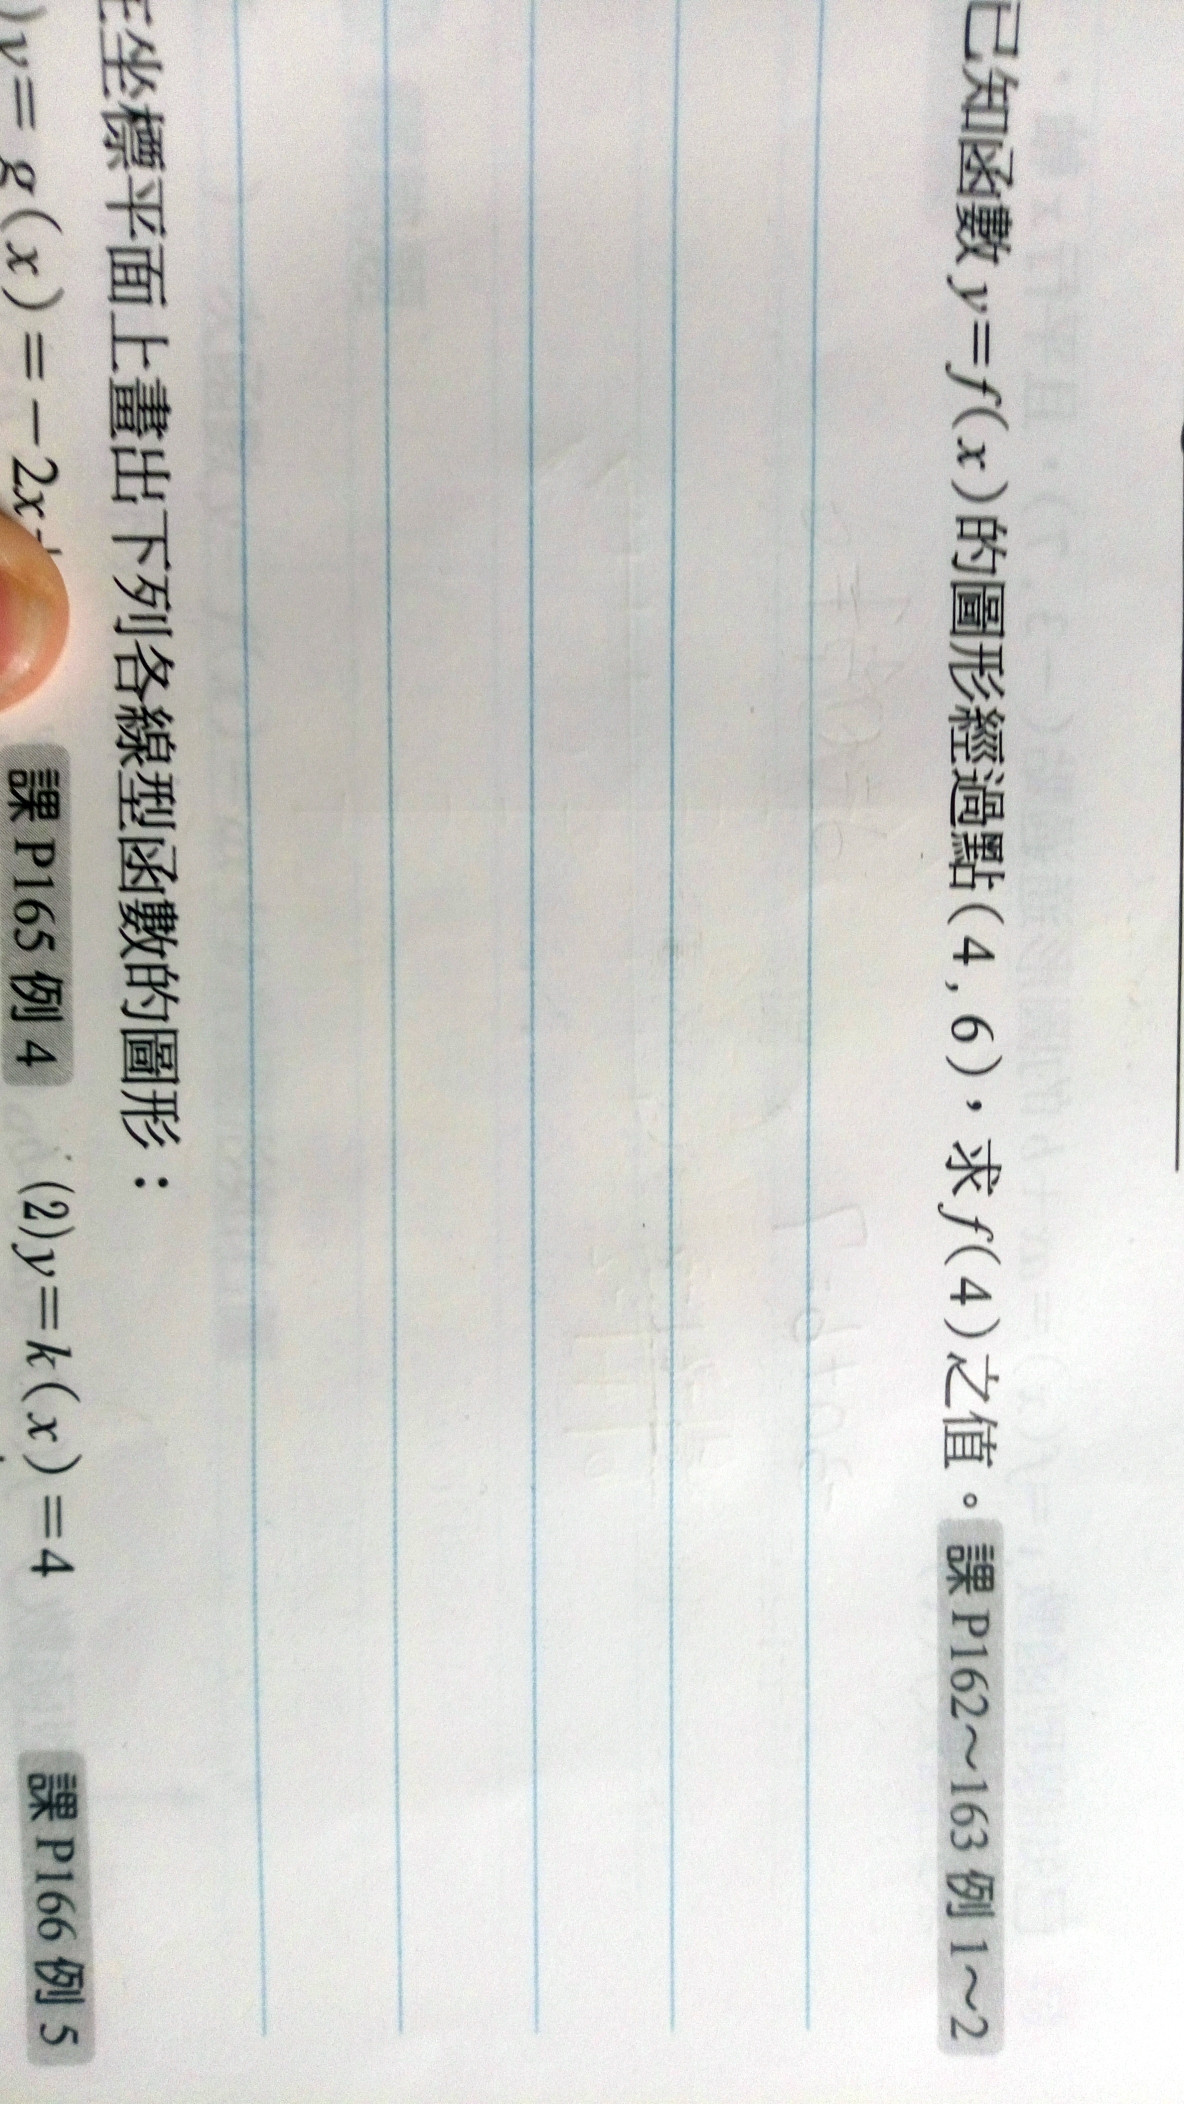 已知函數y=f(x)的圖形經過點(4,6),求f(4)之值。課P162~163例1~2
坐標平面上畫出下列各線型函數的圖形:
)y=g(x)=-2x+ 課P165例4 (2)y=k(x)=4 課P166例5